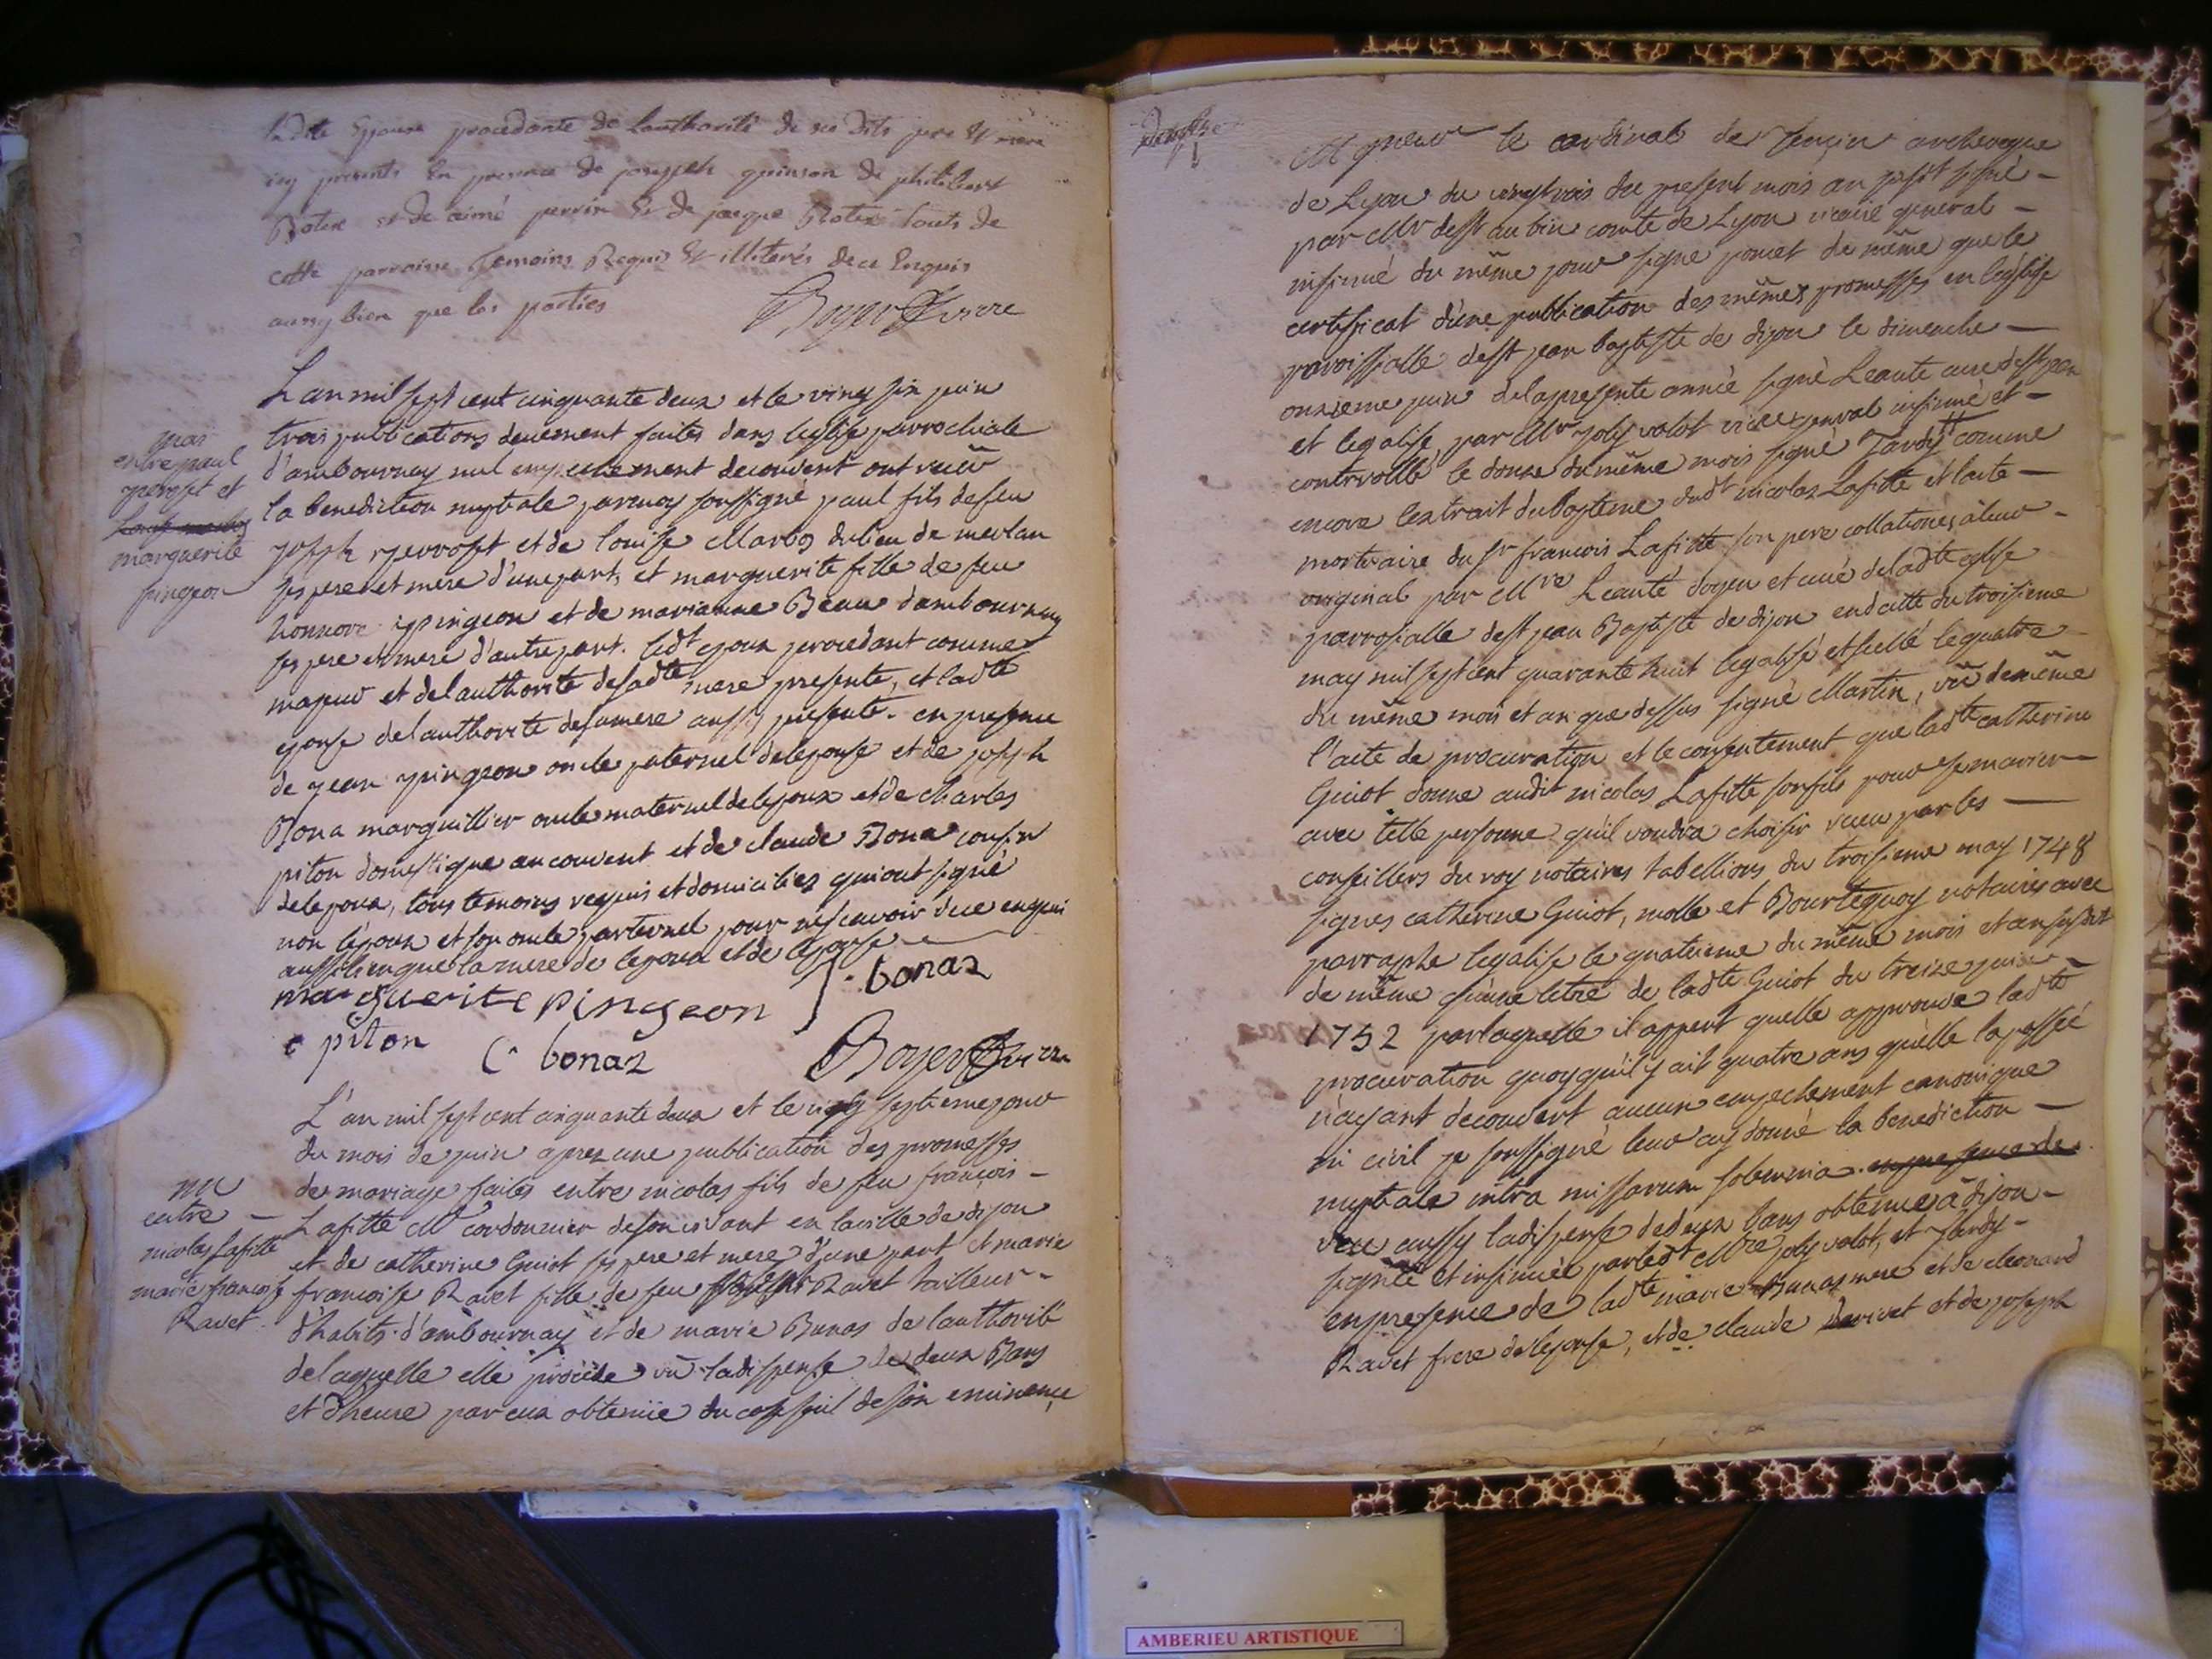 Ladite Epouse procedante de Lauthorité de ses dits pere Et mere
icy presents En presence de joseph guinson de philibert
Botex et de aimé perrin Et de jacque Botex touts de
cette parroisse Temoins Requis Et illiterés de ce Enquis
aussy bien que les parties
Boyer
mar
entre paul
perroset et
marguerite
pingeon
L'an mil sept cent cinquante deux et le vingt six juin
trois publications deuement faites dans leglise parrochiale
d'ambournay nul empechement decouvert ont receü
la benediction nuptiale par moy soussigné paul fils de feu
joseph perroset et de louise Marbos du lieu de merlan
ses pere et mere d'une part, et marguerite fille de feu
honnore pingeon et de marianne Beau d'ambournay
ses pere et mere d'autre part. ledt epoux procedant comme
majeur et de lauthorité de sadte mere presente, et ladte
epouse de lauthorité de sa mere aussy presente. en presence
de jean pingeon oncle paternel de lepouse et de joseph
Bona marguillier oncle maternel de lepoux et de charles
piton domestique au couvent et de claude Bona cousin
de lepoux, tous temoins requis et domicilies qui ont signé
non lépoux et son oncle paternel pour ne scavoir de ce enquis
aussi bien que la mere de lepoux et de lepouse
marguerite pingeon J. bonaz
c piton C. bonaz Boyer
L'an mil sept cent cinquante deux et le vingt septieme jour
du mois de juin apres une publication des promesses
de mariage faites entre nicolas fils de feu françois -
mr
entre -
nicolas Lafitte
marie françoise
Ravet
Lafitte Mt cordonnier de son vivant en la ville de dijon
et de catherine Guiot ses pere et mere d'une part et marie
francoise Ravet fille de feu Ravet tailleur -
d'habits d'ambournay et de marie Bunas de lauthorité
de laquelle elle procéde vû la dispense de deux Bans
et d'heure par eux obtenüe du conseil de son eminence
Mgneur le cardinal de Tencin archeveque
de Lyon du vingt trois du present mois an susdt signé -
par Mr de st aubin comte de Lyon vicaire general -
insinué du même jour signe poncet de même que le
certificat d'une publication des mêmes promesses en léglise
paroissialle de st jean baptiste de dijon le dimenche -
onzieme juin de la presente année signé Leauté curé de st jean
et legalise par Mr joly valot vice general insinué et -
controllé le douze du même mois signé Tardy comme
encore lextrait du Bapteme dudt nicolas Lafitte et lacte -
mortuaire du sr francois Lafitte son pere collationes à leur -
original par Mre Leauté doyen et curé de ladte eglise
parrosialle de st jean Baptiste de dijon en datte du troisieme
may mil sept cent quarante huit legalisé et scellé le quatre
du même mois et an que dessus signé Martin, vû de même
l'acte de procuration et le consentement que ladte catherine
Guiot donne audit nicolas Lafitte son fils pour se marier -
avec telle personne qu'il voudra choisir receu par les -
conseillers du roy notaires tabellions du troisieme may 1748
signes catherine Guiot, molle et Bourtequoy notaires avec
parraphe legalise le quatrieme du même mois et an susdit
de même qu'une letre de ladte Guiot du treize juin -
1752 par laquelle il appert quelle approuve ladte
procuration quoyqu'il y ait quatre ans qu'elle la passée
n'ayant decouvert aucun empechement canonique
ni civil je soussigné leur ay donné la benediction -
nuptiale intra missarum solemnia en presence de
veu aussy la dispense de deux bans obtenue à dijon -
signée et insinuée par ledt Mre joly valot, et Tardy -
en presence de ladte marie Bunas mere et de leonard
Ravet frere de lepouse, et de claude Derivet et de joseph
AMBERIEU ARTISTIQUE